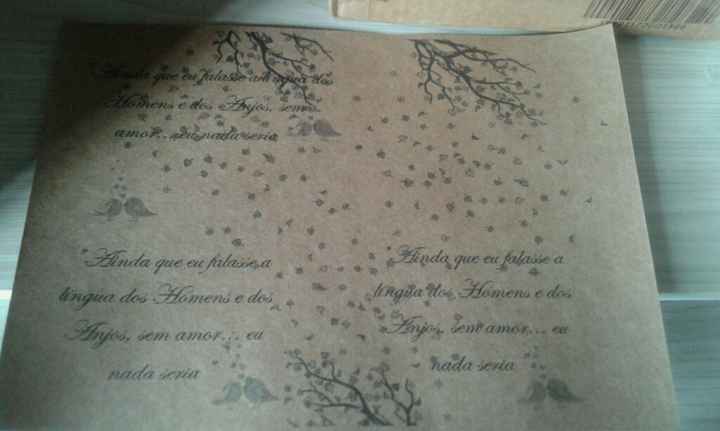 "Ainda que eu falasse a língua dos
Homens e dos Anjos, sem
amor... eu nada seria
"Ainda que eu falasse a
língua dos Homens e dos
Anjos, sem amor... eu
nada seria
"Ainda que eu falasse a
língua dos Homens e dos
Anjos, sem amor... eu
nada seria